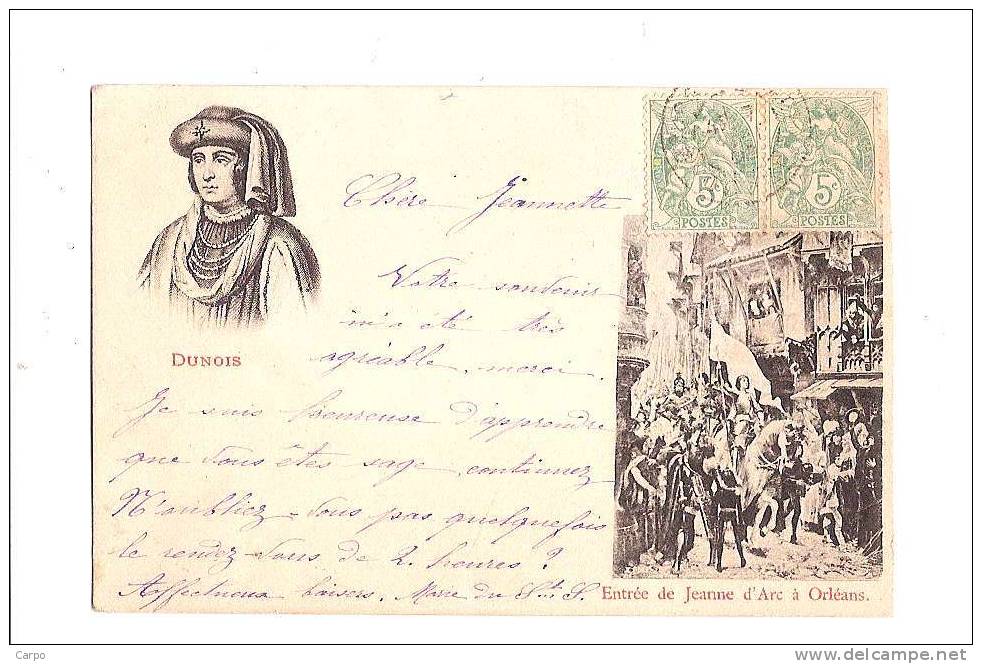 5c
POSTES
5c
POSTES
Chère Jeannette
Votre souvenir
m'a été très
agréable, merci.
DUNOIS
Je suis heureuse d'apprendre
que vous êtes sage, continuez
N'oubliez-vous pas quelquefois
le rendez-vous de 2 heures ?
Affectueux baisers. Marie du St. S.
Entrée de Jeanne d'Arc à Orléans.
Carpo
delcampe.net